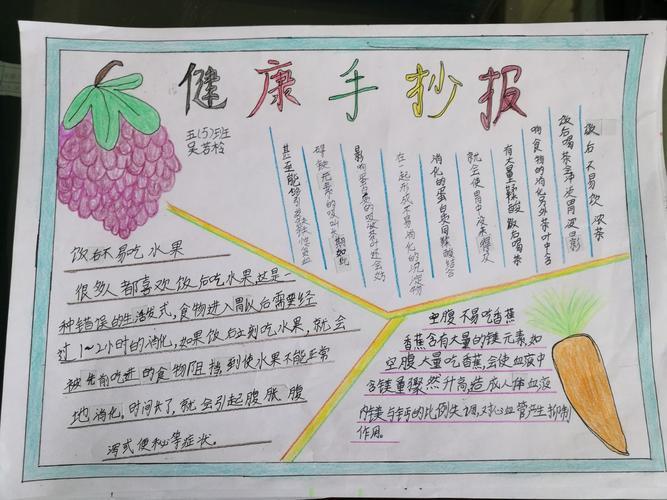 健康手抄报
五(5)班
饭后不易饮浓茶
饭后喝茶会冲淡胃液影
响食物的消化另外茶叶中含
有大量鞣酸饭后喝茶
就会使胃中没来得及
消化的蛋白质同鞣酸结合
在一起形成不易消化的沉淀物
影响蛋白质的吸收茶叶还会妨
碍元素的吸期如此
甚至能够引发缺铁性贫血
饭后不易吃水果
很多人都喜欢饭后吃水果这是一
种错误的生活方式,食物进入胃以后需要经
过1~2小时的消化,如果饭后立刻吃水果,就会
被先前吃进的食物阻挡到使水果不能正常
地消化。时间长了,就会引起腹胀腹
泻或便秘等症状。
空腹不易吃香蕉
香蕉含有大量的镁元素,如
空腹大量吃香蕉,会使血液中
含镁量骤然升高造成人体血液
内镁与钙的比例失调,对心血管产生抑制
作用。